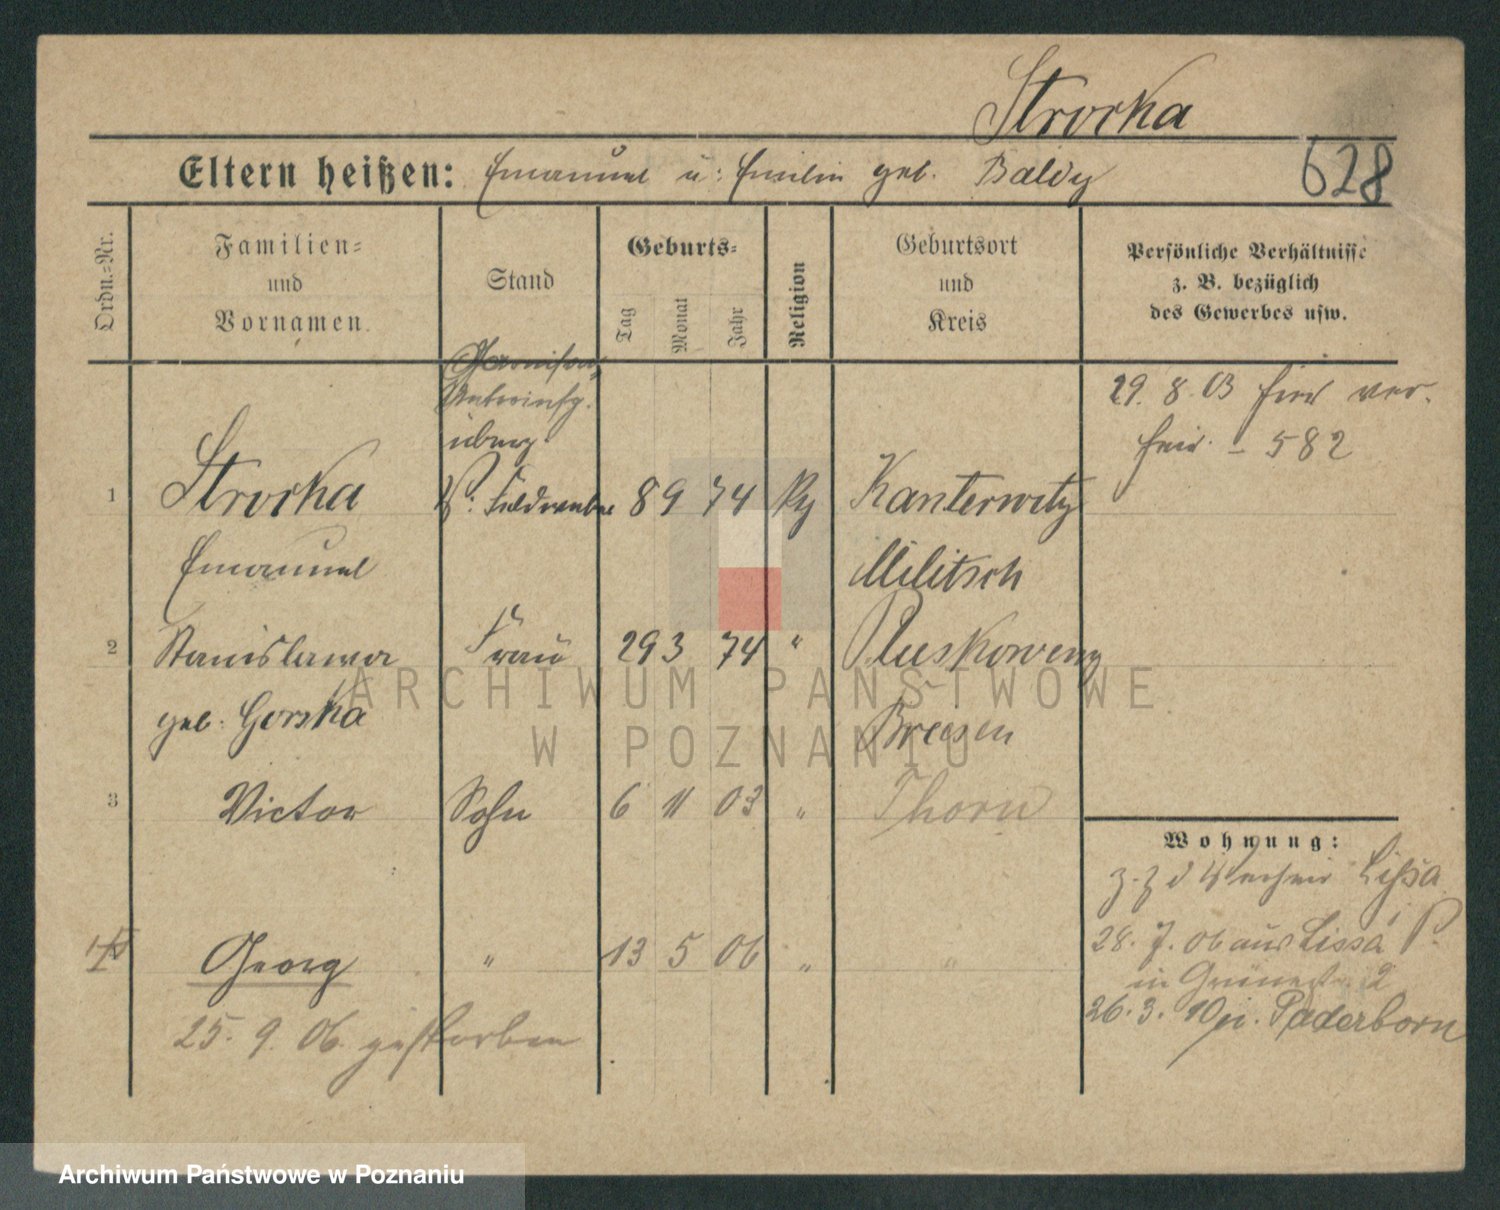 Strocka
628
Eltern heißen: Emanuel u: Emilie geb. Baldy
Ordn.=Nr.
Familien=
und
Vornamen.
Stand
Geburts=
Tag
Monat
Jahr
Religion
Geburtsort
und
Kreis
Persönliche Verhältnisse
z. B. bezüglich
des Gewerbes usw.
29. 8. 03 hier ver-
heir. – 582
Garnison
1 Strocka Feldwebel 8 9 74 Kanterwitz
Emanuel Militsch
2 Stanislawa Frau 29 3 74 " Pluskowenz
geb. Gorska Briesen
3 Victor Sohn 6 11 03 " Thorn
Wohnung:
z. Z. Lissa
4 Georg " 13 5 06 " "
28. 7. 06 aus Lissa P.
in 2
25. 9. 06 gestorben
26. 3. 10 Paderborn
ARCHIWUM PAŃSTWOWE
W POZNANIU
Archiwum Państwowe w Poznaniu